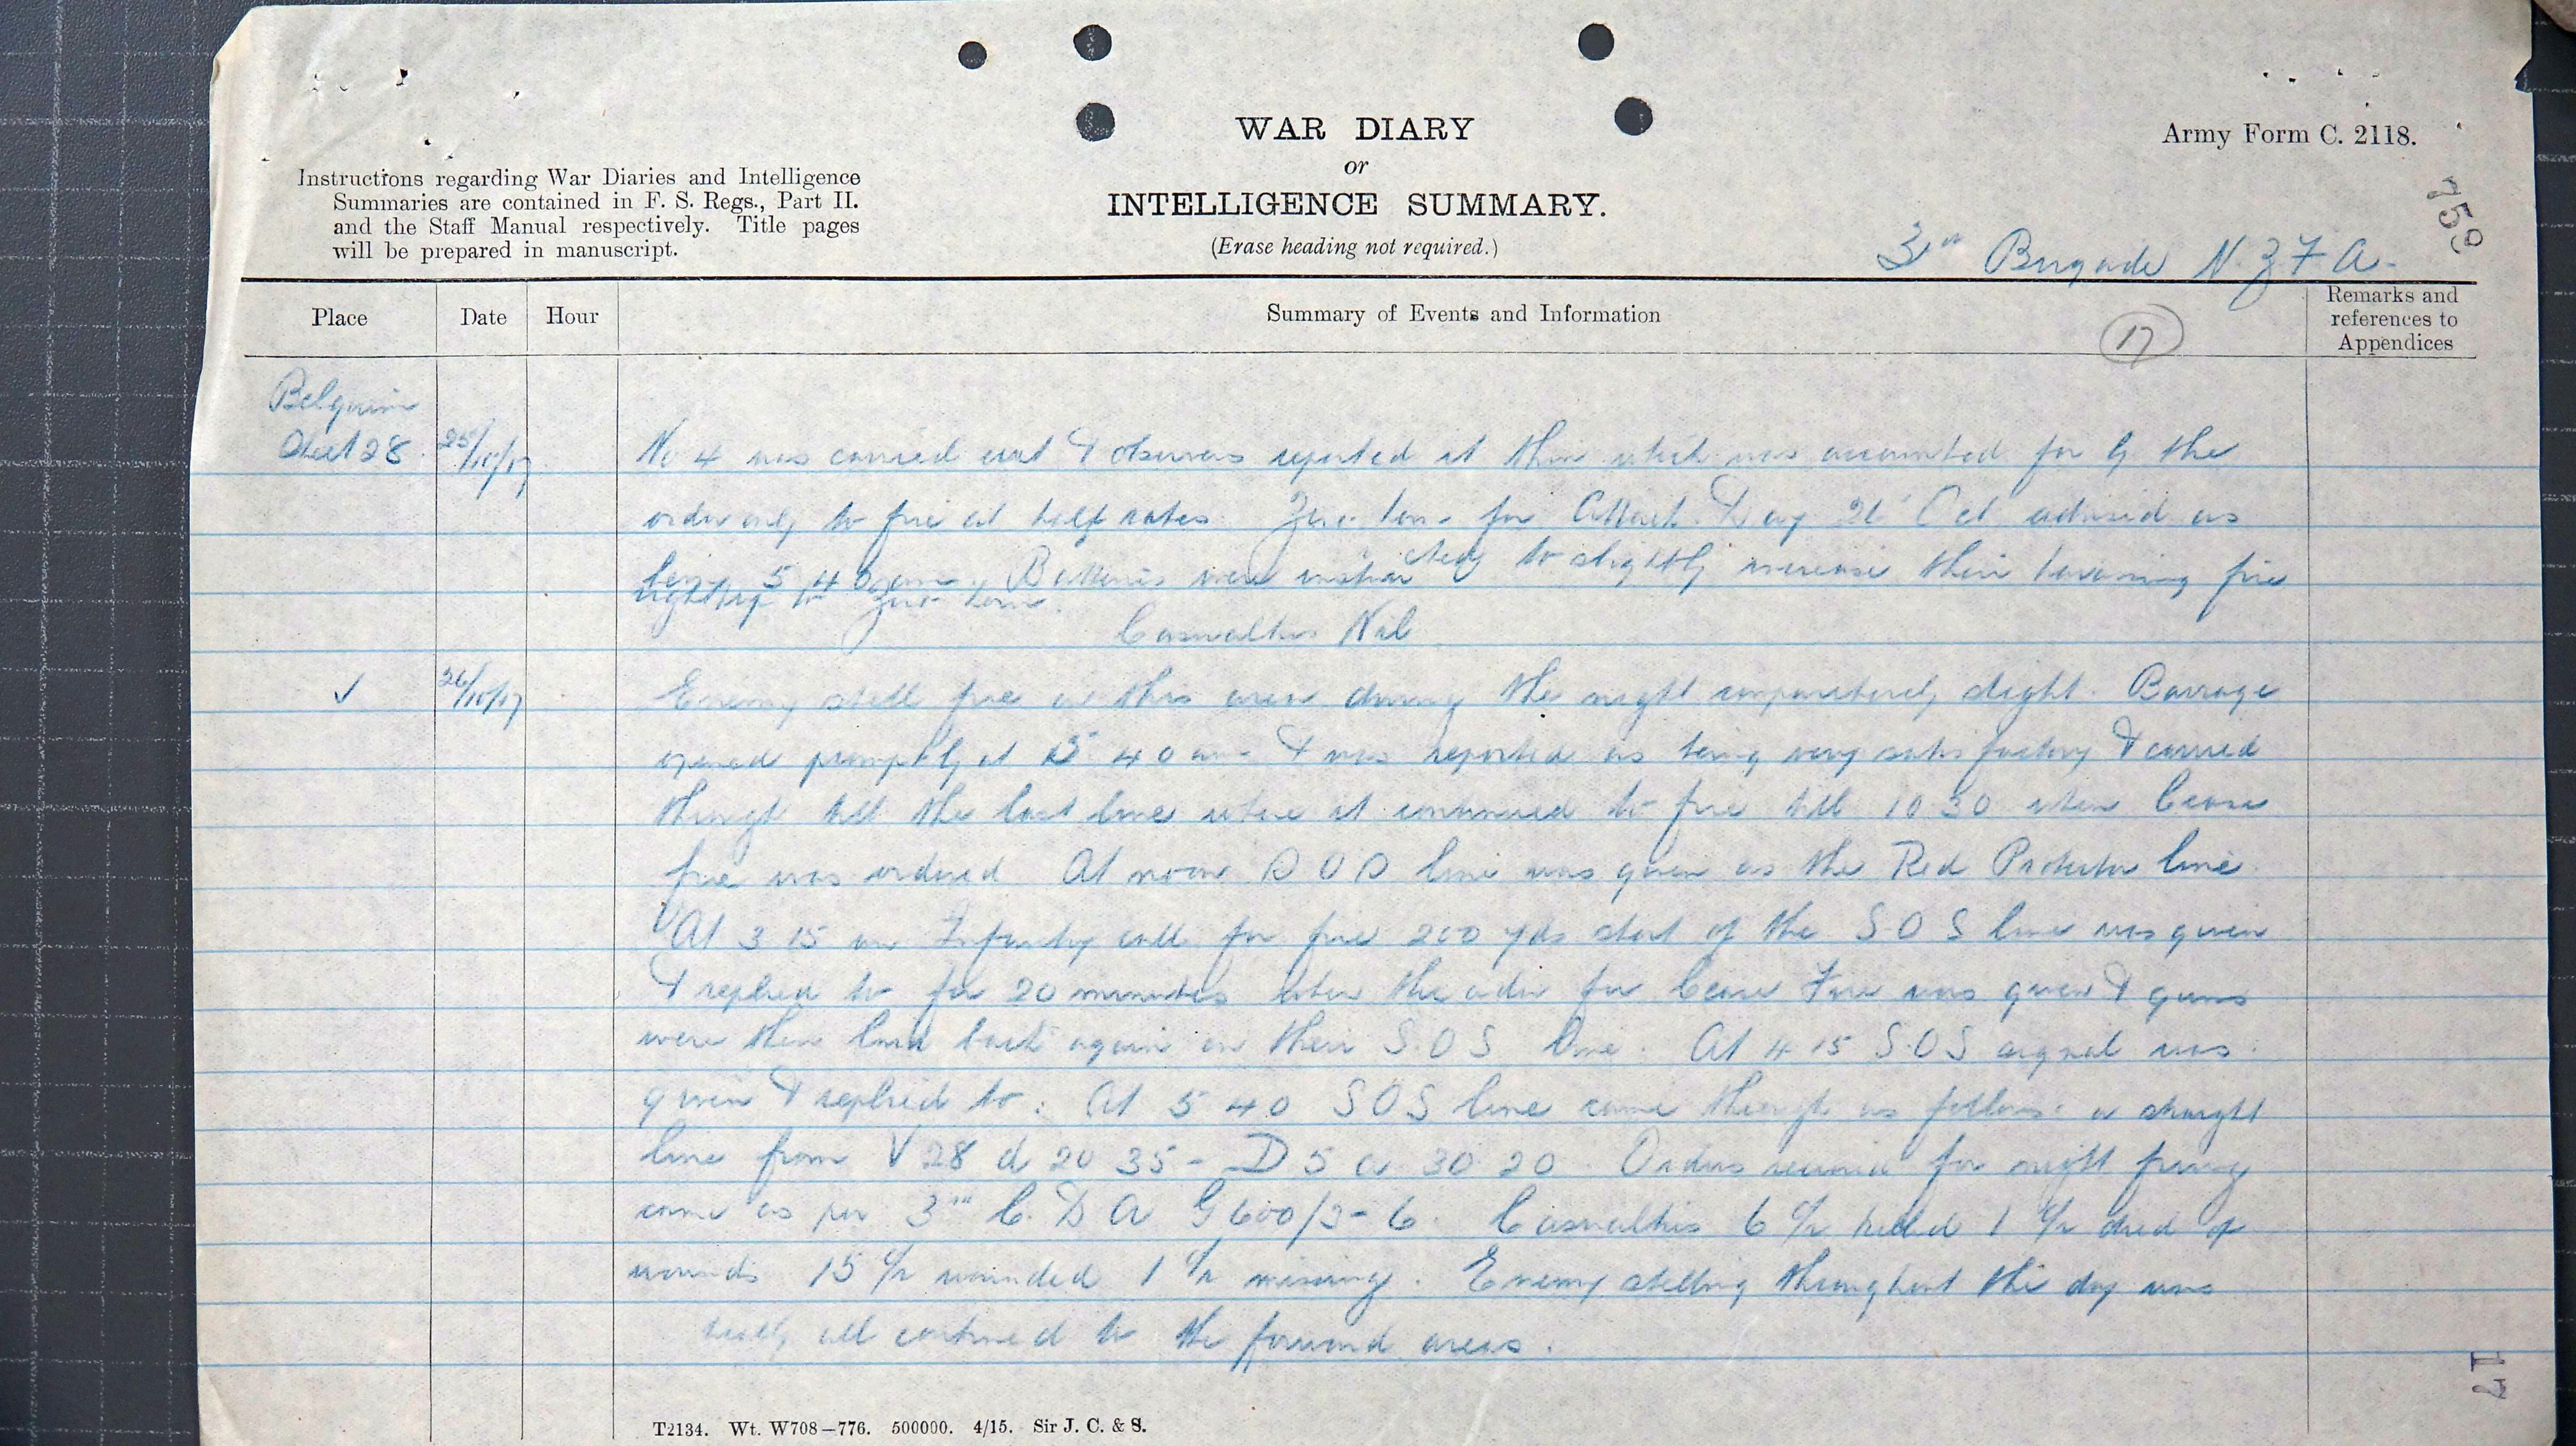 WAR DIARY
or
INTELLIGENCE SUMMARY.
(Erase heading not required.)
Army Form C. 2118.
759
Instructions regarding War Diaries and Intelligence
Summaries are contained in F. S. Regs., Part II.
and the Staff Manual respectively. Title pages
will be prepared in manuscript.
3rd Brigade N.Z.F.A.
Place Date Hour Summary of Events and Information Remarks and
references to
Appendices
17
Belgium
Sheet 28 25/10/17 No 4 was carried out & observers reported it thin which was accounted for by the
order only to fire at half rates. Zero hour for Attack Day 26 Oct advised as
being 5 40 am. Batteries were instructed to slightly increase their harassing fire
right up to zero hour.
Casualties Nil
✓ 26/10/17 Enemy shell fire in this area during the night comparatively slight. Barrage
opened promptly at 5 40 am & was reported as being very satisfactory & carried
through till the last line where it continued to fire till 10 30 when Cease
fire was ordered At noon S O S line was given as the Red Protector line.
At 3 15 an Infantry call for fire 200 yds short of the S.O.S line was given
& replied to for 20 minutes when the order for Cease Fire was given & guns
were then laid back again on their S.O.S line. At 4 15 S.O.S signal was
given & replied to. At 5 40 SOS line came through as follows: a straight
line from V 28 d 20 35 - D 5 a 30 20. Orders received for night firing
came as per 3rd C. D A G 600/3-6. Casualties 6 O/R killed 1 O/R died of
wounds 15 O/R wounded 1 O/R missing. Enemy shelling throughout the day was
all confined to the forward areas.
T2134. Wt. W708—776. 500000. 4/15. Sir J. C. & S.
17